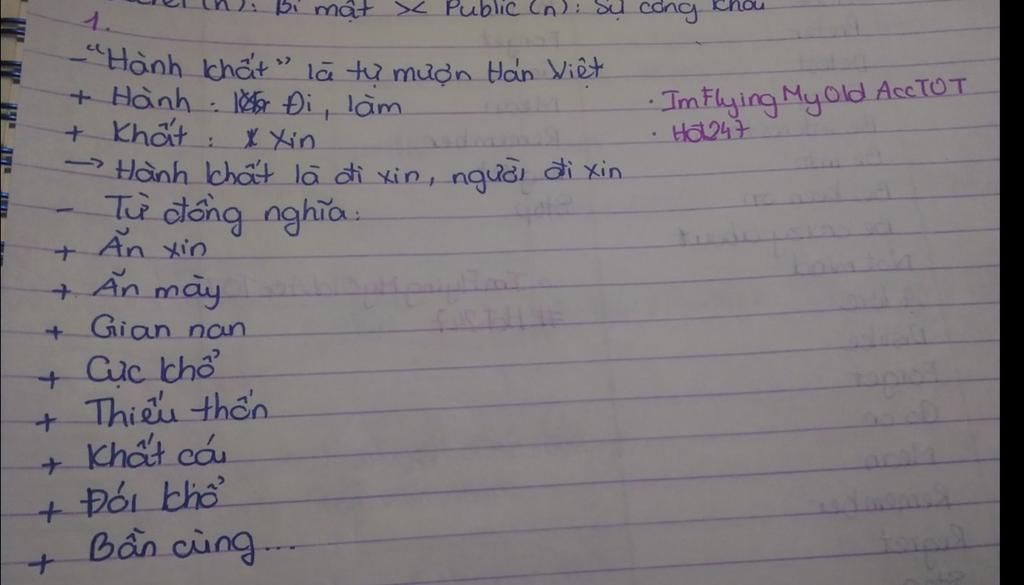 (n): Bí mật >< Public (n): Sự công khai
1.
- "Hành khất" là từ mượn Hán Việt
+ Hành : Đi, làm
+ Khất : Xin
→ Hành khất là đi xin, người đi xin
- Từ đồng nghĩa:
+ Ăn xin
+ Ăn mày
+ Gian nan
+ Cực khổ
+ Thiếu thốn
+ Khất cái
+ Đói khổ
+ Bần cùng...
· ImFlyingMyOld AccTOT
· Hd247